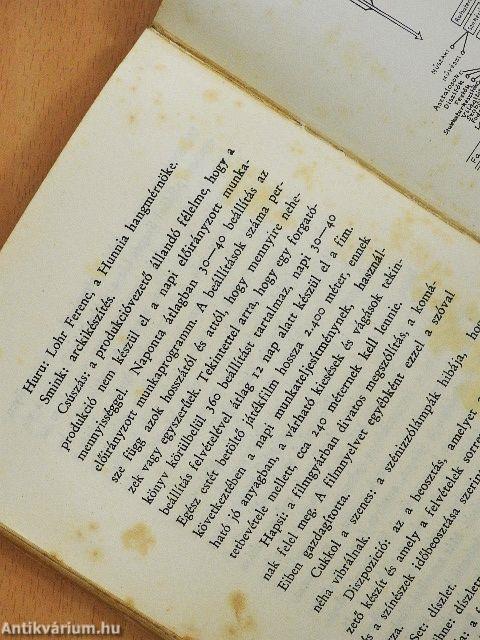 MŰSZAKI
MŰVÉSZI
Huru: Lohr Ferenc, a Hunnia hangmérnöke.
Smink: arckikészítés.
Csúszás: a produkcióvezető állandó félelme, hogy a
produkció nem készül el a napi előirányzott munka-
mennyiséggel. Naponta átlagban 30—40 beállítás az
előirányzott munkaprogramm. A beállítások száma per-
sze függ azok hosszától és attól, hogy mennyire nehe-
zek vagy egyszerűek. Tekintettel arra, hogy egy forgató-
könyv körülbelül 360 beállítást tartalmaz, napi 30—40
beállítás felvételével átlag 12 nap alatt készül el a film.
Egész estét betöltő játékfilm hossza 2.400 méter, ennek
következtében a napi munkateljesítménynek használ-
ható jó anyagban, a várható kiesések és vágások tekin-
tetbevétele mellett, cca 240 méternek kell lennie.
Hapsi: a filmgyárban divatos megszólítás, a komá-
nak felel meg. A filmnyelvet egyébként ezzel a szóval
Eiben gazdagította.
Cukkol a szenes: a szénizzólámpák hibája, ho
néha vibrálnak.
Diszpozíció: az a beosztás, amelyet a
zető készít és amely a felvételek sorre
s a színészek időbeosztása szerin
za.
et: díszlet.
Antikvárium.hu